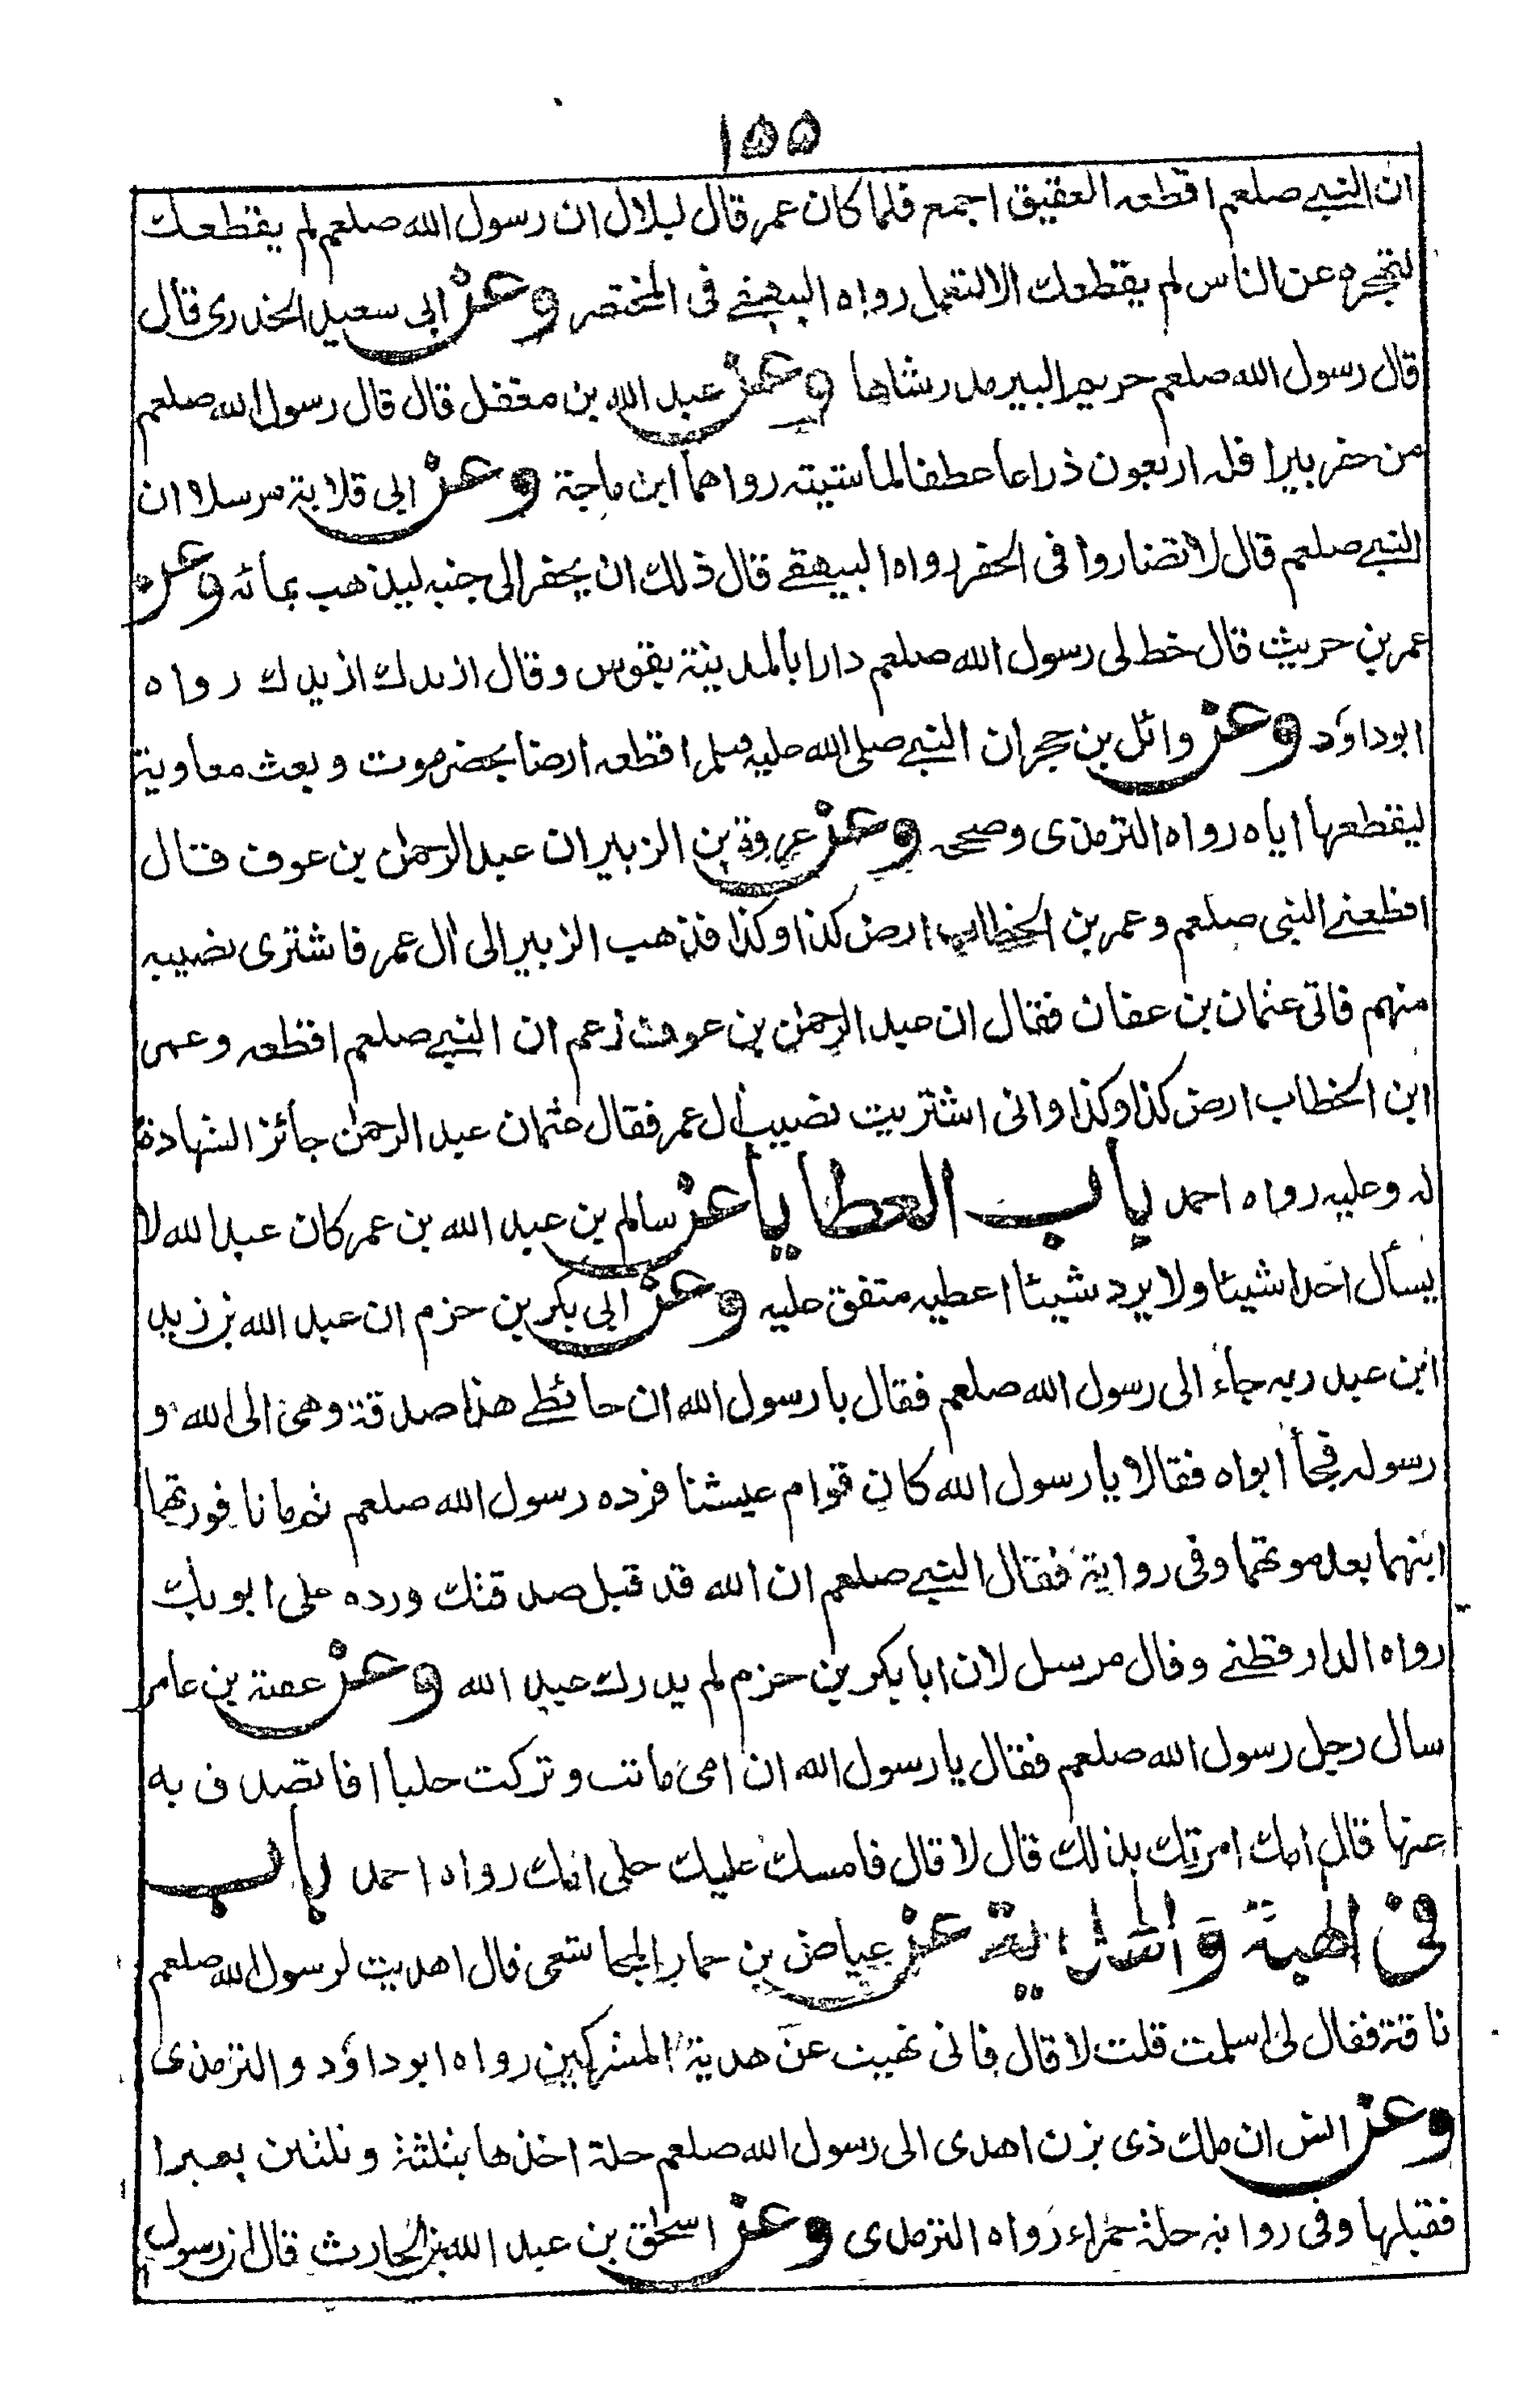 ١٥٥
ان النبي صلعم اقطعه العقيق اجمع فلما كان عمر قال لبلال ان رسول الله صلعم لم يقطعك
لتحجره عن الناس لم يقطعك الا لتعمل رواه البيهقي فى المختصر وعن ابى سعيد الخدرى قال
قال رسول الله صلعم حريم البير مد رشاها وعن عبد الله بن مغفل قال قال رسول الله صلعم
من حفر بيرا فله اربعون ذراعا عطفا لماشيته رواهما ابن ماجة وعن ابى قلابة مرسلا ان
النبي صلعم قال لا تضاروا فى الحفر رواه البيهقي قال ذلك ان يحفر الى جنبه ليذهب بمائه وعن
عمر بن حريث قال خط لى رسول الله صلعم دارا بالمدينة بقوس وقال ازيدك ازيدك رواه
ابوداؤد وعن وائل بن حجر ان النبي صلى الله عليه وسلم اقطعه ارضا بحضرموت وبعث معاوية
ليقطعها اياه رواه الترمذى وصححه وعن عروة بن الزبير ان عبد الرحمٰن بن عوف قال
اقطعنے النبى صلعم وعمر بن الخطاب ارض كذا وكذا فذهب الزبير الى اٰل عمر فاشترى نصيبه
منهم فاتى عثمان بن عفان فقال ان عبد الرحمٰن بن عوف زعم ان النبي صلعم اقطعه وعمر
ابن الخطاب ارض كذا وكذا وانى اشتريت نصيب اٰل عمر فقال عثمان عبد الرحمٰن جائز الشهادة
له وعليه رواه احمد باب العطايا عن سالم بن عبد الله بن عمر كان عبد الله لا
يسأل احدا شيئا ولا يرد شيئا اعطيه متفق عليه وعن ابى بكر بن حزم ان عبد الله بن زيد
ابن عبد ربه جاء الى رسول الله صلعم فقال يا رسول الله ان حائطے هذا صدقة وهى الى الله و
رسوله فجأ ابواه فقالا يا رسول الله كان قوام عيشنا فرده رسول الله صلعم ثم ماتا فورثهما
ابنهما بعد موتهما وفى رواية فقال النبي صلعم ان الله قد قبل صدقتك ورده على ابويك
رواه الدارقطنے وقال مرسل لان ابا بكر بن حزم لم يدرك عبد الله وعن عقبة بن عامر
سال رجل رسول الله صلعم فقال يا رسول الله ان امى ماتت وتركت حليا افاتصدق به
عنها قال امك امرتك بذلك قال لا قال فامسك عليك حلى امك رواه احمد باب
فى الهبة والهدية عن عياض بن حمار المجاشعى قال اهديت لرسول الله صلعم
ناقة فقال لى اسلمت قلت لا قال فانى نهيت عن هدية المشركين رواه ابوداؤد والترمذى
وعن انس ان ملك ذى يزن اهدى الى رسول الله صلعم حلة اخذها بثلثة وثلثين بعيرا
فقبلها وفى رواية حلة حمراء رواه الترمذى وعن اسحٰق بن عبد الله بن الحارث قال ان رسول